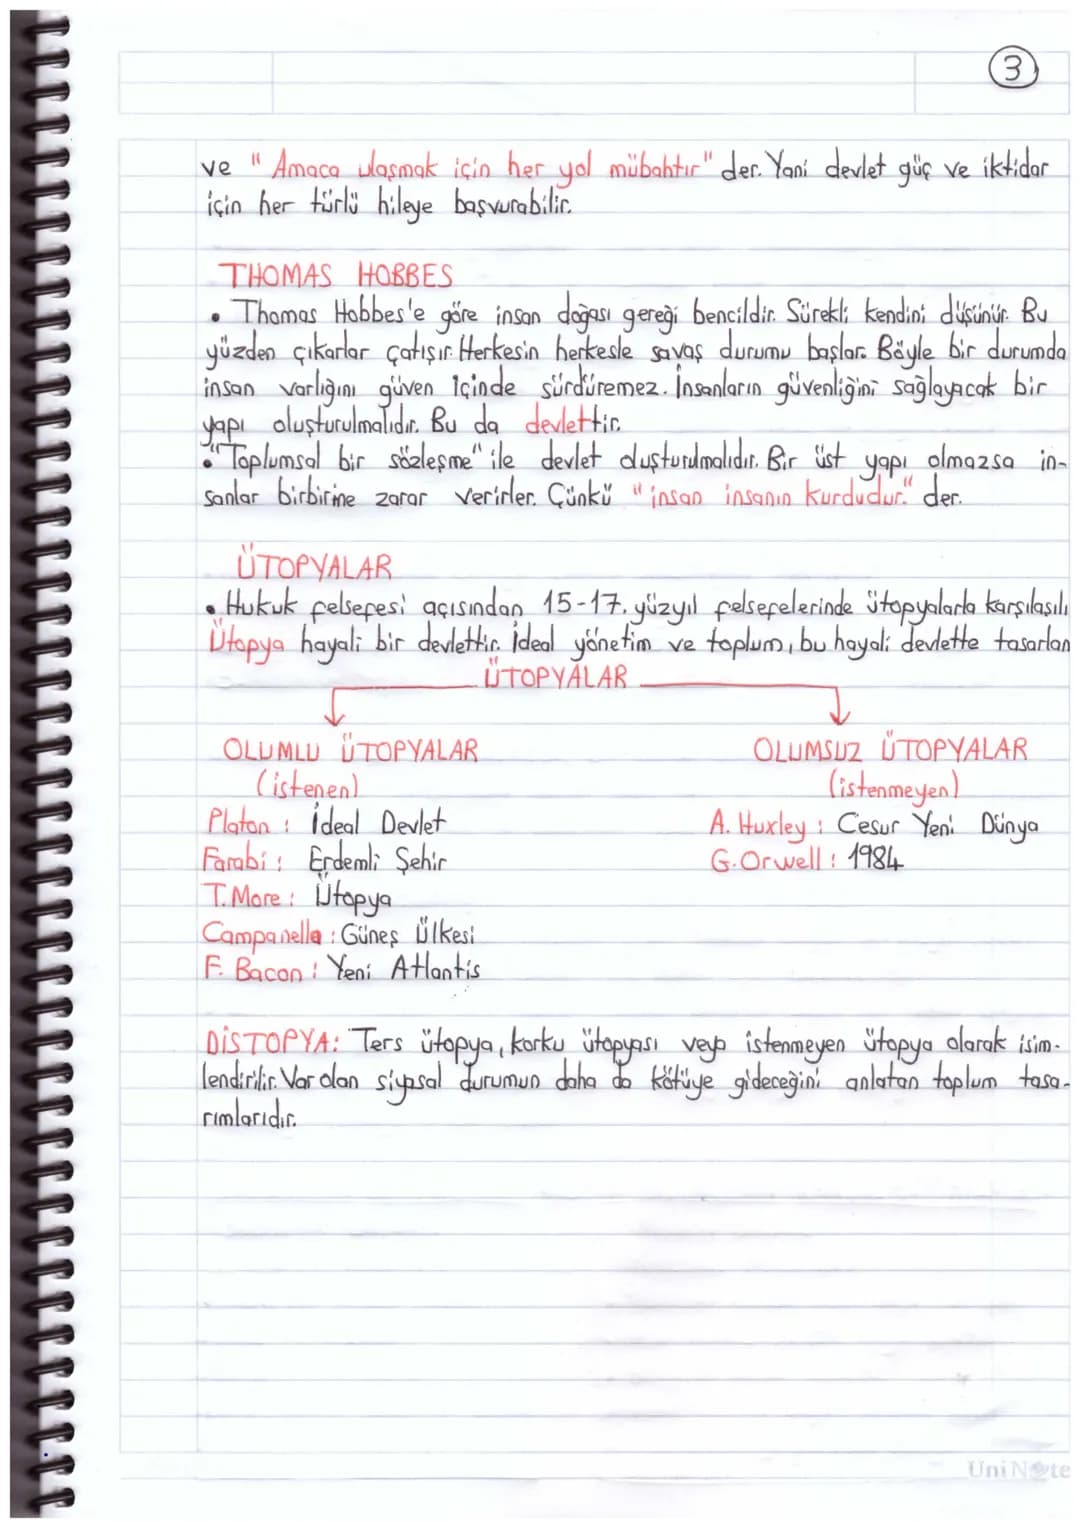 3
ve "Amaca ulaşmak için her yol mübahtır" der. Yani devlet güç ve iktidar
için her türlü hileye başvurabilir.
THOMAS HOBBES
• Thomas Hobbes'e göre insan doğası gereği bencildir. Sürekli kendini düşünür. Bu
yüzden çıkarlar çatışır. Herkesin herkesle savaş durumu başlar. Böyle bir durumda
insan varlığını güven içinde sürdüremez. İnsanların güvenliğini sağlayacak bir
yapı oluşturulmalıdır. Bu da devlettir.
• "Toplumsal bir sözleşme" ile devlet oluşturulmalıdır. Bir üst yapı olmazsa in-
sanlar birbirine zarar verirler. Çünkü "insan insanın kurdudur." der.
ÜTOPYALAR
• Hukuk felsefesi açısından 15-17. yüzyıl felsefelerinde ütopyalarla karşılaşılı
Ütopya hayali bir devlettir. İdeal yönetim ve toplum, bu hayali devlette tasarlan
ÜTOPYALAR
OLUMLU ÜTOPYALAR
(istenen)
Platon : İdeal Devlet
Farabi : Erdemli Şehir
T. More : Ütopya
Campanella : Güneş Ülkesi
F. Bacon : Yeni Atlantis
OLUMSUZ ÜTOPYALAR
(istenmeyen)
A. Huxley : Cesur Yeni Dünya
G. Orwell : 1984
DİSTOPYA: Ters ütopya, korku ütopyası veya istenmeyen ütopya olarak isim-
lendirilir. Var olan siyasal durumun daha da kötüye gideceğini anlatan toplum tasa-
rımlarıdır.
UniNote